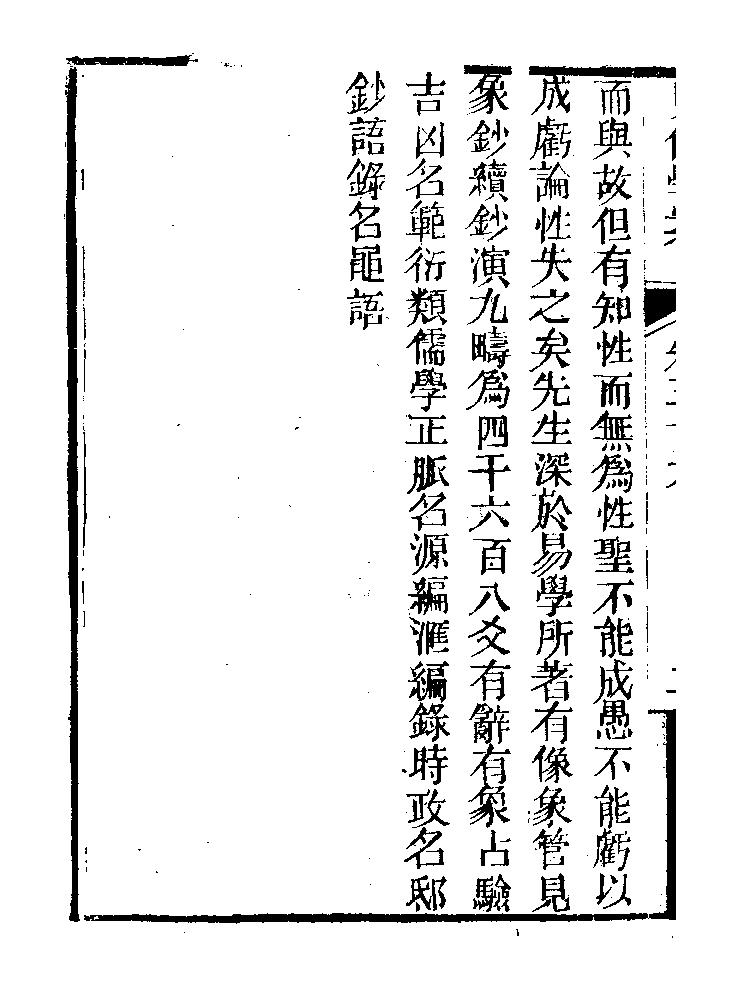 而與故但有知性而無爲性聖不能成愚不能虧以
成虧論性失之矣先生深於易學所著有像象管見
象鈔續鈔演九疇爲四千六百八爻有辭有象占驗
吉凶名範衍類儒學正脈名源編滙編錄時政名邸
鈔語錄名黽語